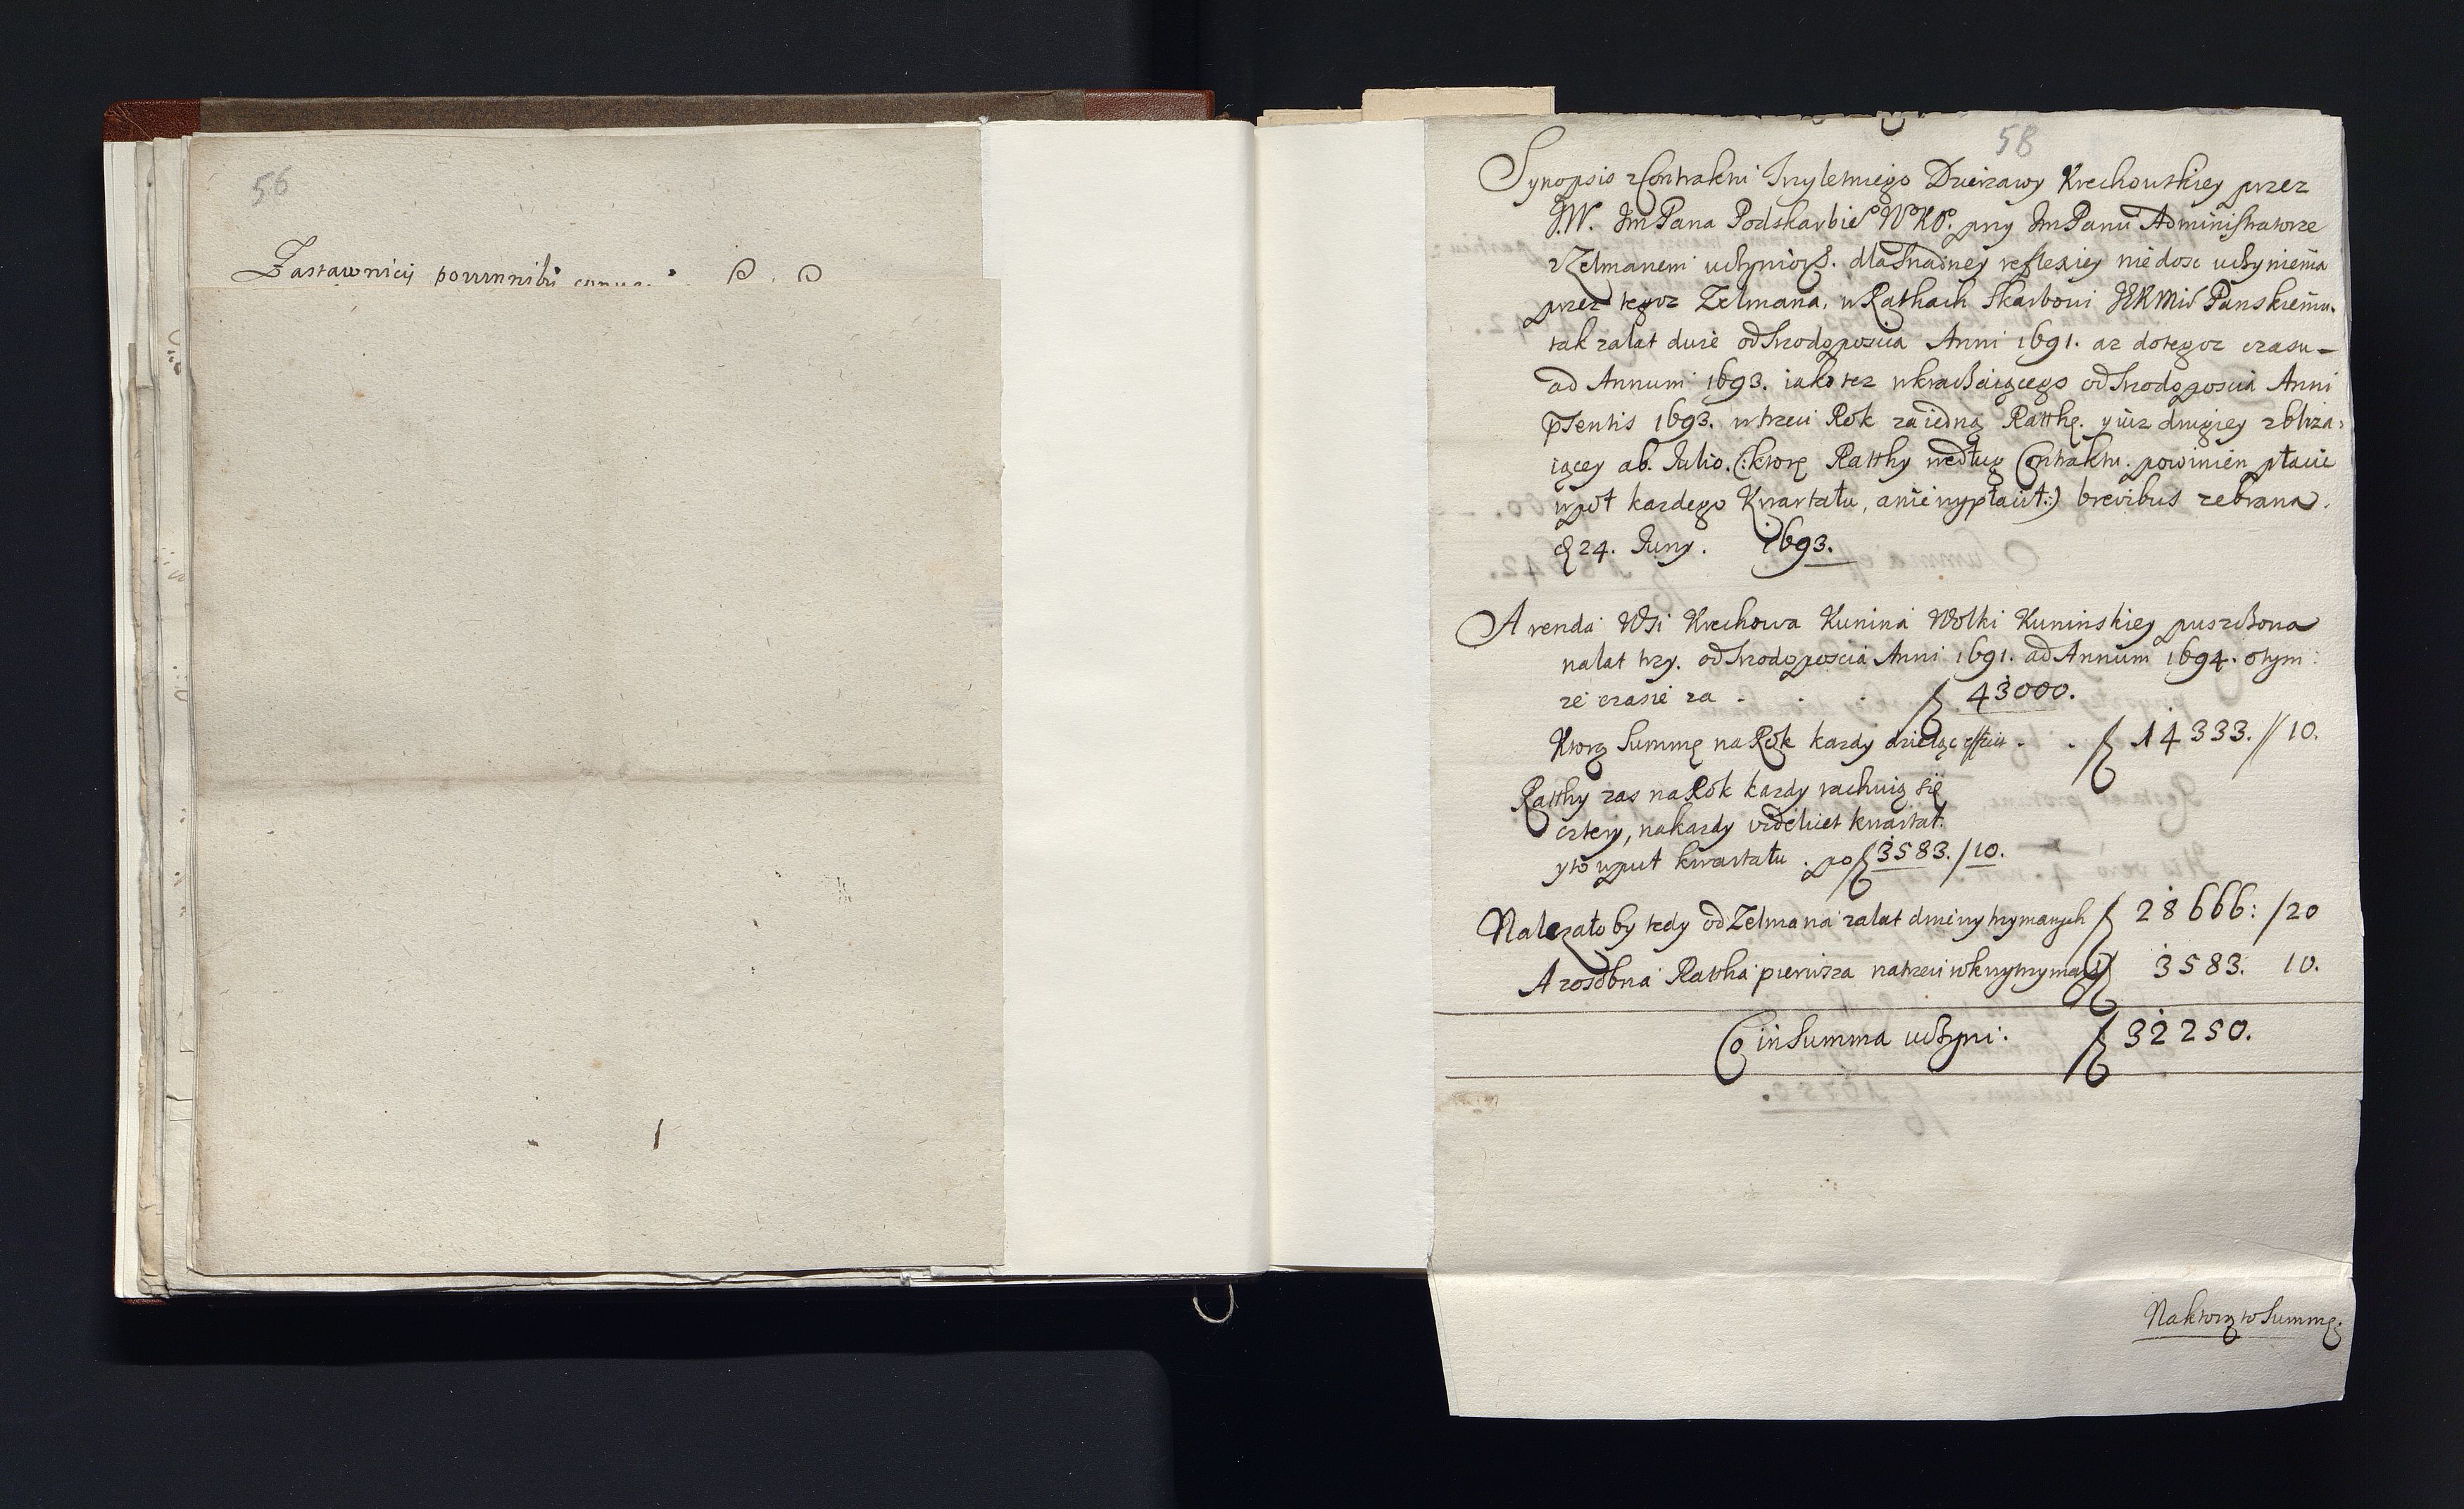 56
Zastawnicÿ powinnibÿ
58
Synopsis z Contraktu Trzyletniego Dzierzawy Krechowskiey przez
J.W. Jm Pana Podskarbie° W°K°. przy Jm Panu Administratorze
z Zelmanem uczynio. dla snadney reflexiey nie dosc uczynienia
przez tegoz Zelmana, w Ratthach Skarbowi JKMści Panskiemu.
tak za lat dwie od Srzodoposcia Anni 1691. az do tegoz czasu
ad Annum 1693. iako tez wkraczaiącego od Srzodoposcia Anni
Psentis 1693. w trzeci Rok za iedną Ratthę. y iuz drugiey zbliza:
iącey ab. Julio. (:ktorę Ratthy według Contraktu. powinien płacic
wpoł kazdego Kwartału, a nie wypłacił:) brevibus zebrana.
d 24. Juny. 1693.
Arenda Wsi Krechowa Kunina Wolki Kuninskiey puszczona
na lat trzy. od Srzodoposcia Anni 1691. ad Annum 1694. o tym:
ze czasie za . . . f 43000.
Ktorą Summę na Rok kazdy dzieląc efficit . . f 14333. // 10.
Ratthy zas na Rok kazdy rachuią się
cztery, na kazdy videlicet kwartał.
y to wpuł kwartału . po f 3583. / 10.
Nalezało by tedy od Zelmana za lat dwie wytrzymanych f 28666: / 20
A zosobna Rattha pierwsza na trzeci rok f 3583. 10.
Co in Summa uczyni: f 32250.
Na ktorą to Summę.